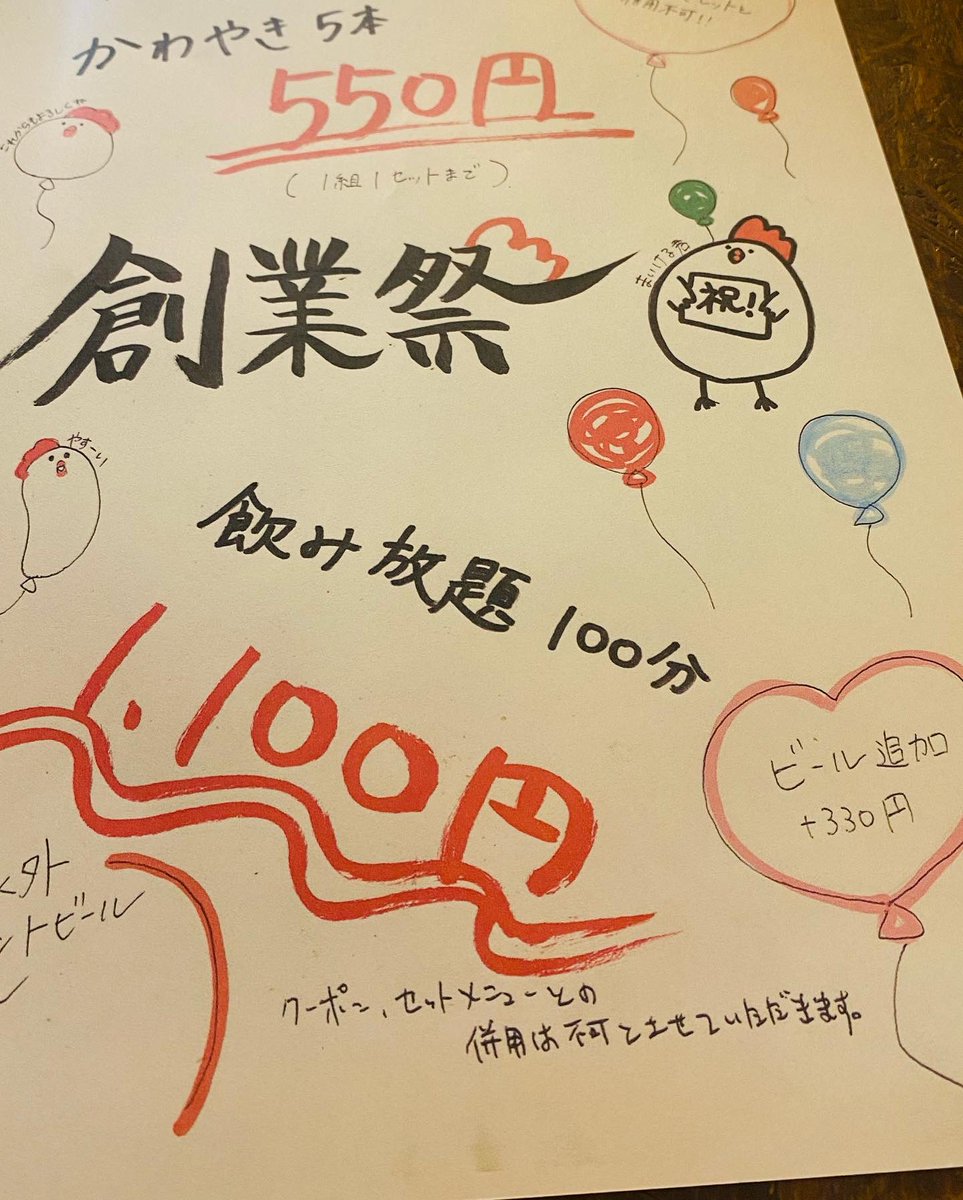 併用不可!!
かわやき 5本
550円
(1組1セットまで)
これからもよろしくね
創業祭
祝!
やすーい
飲み放題 100分
1.100円
ビール追加
+330円
外
ントビール
クーポン、セットメニューとの
併用は不可とさせていただきます。